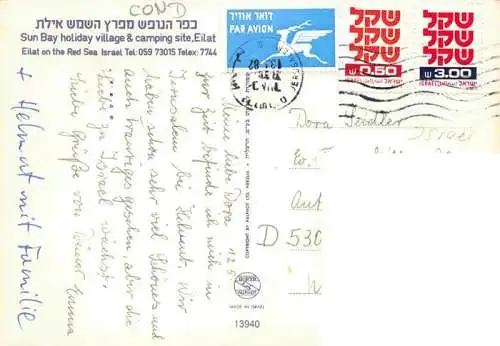 COND
כפר הנופש מפרץ השמש אילת
Sun Bay holiday village & camping site, Eilat
Eilat on the Red Sea Israel Tel: 059 73015 Telex: 7744
דואר אוויר
PAR AVION
שקל
שקל
שקל
0.50
ISRAEL ישראל
שקל
שקל
שקל
3.00
ISRAEL ישראל
Meine liebe Dora 12.5
Zur Zeit befinde ich mich in
Jerusalem bei Helmut. Wir
haben schon sehr viel Schönes und
auch trauriges gesehen, aber die
Liebe zu Israel wächst.
Liebe Grüße von Deiner Emma
+ Helmut mit Familie
Dora Seidler
D 530
MADE IN ISRAEL
13940